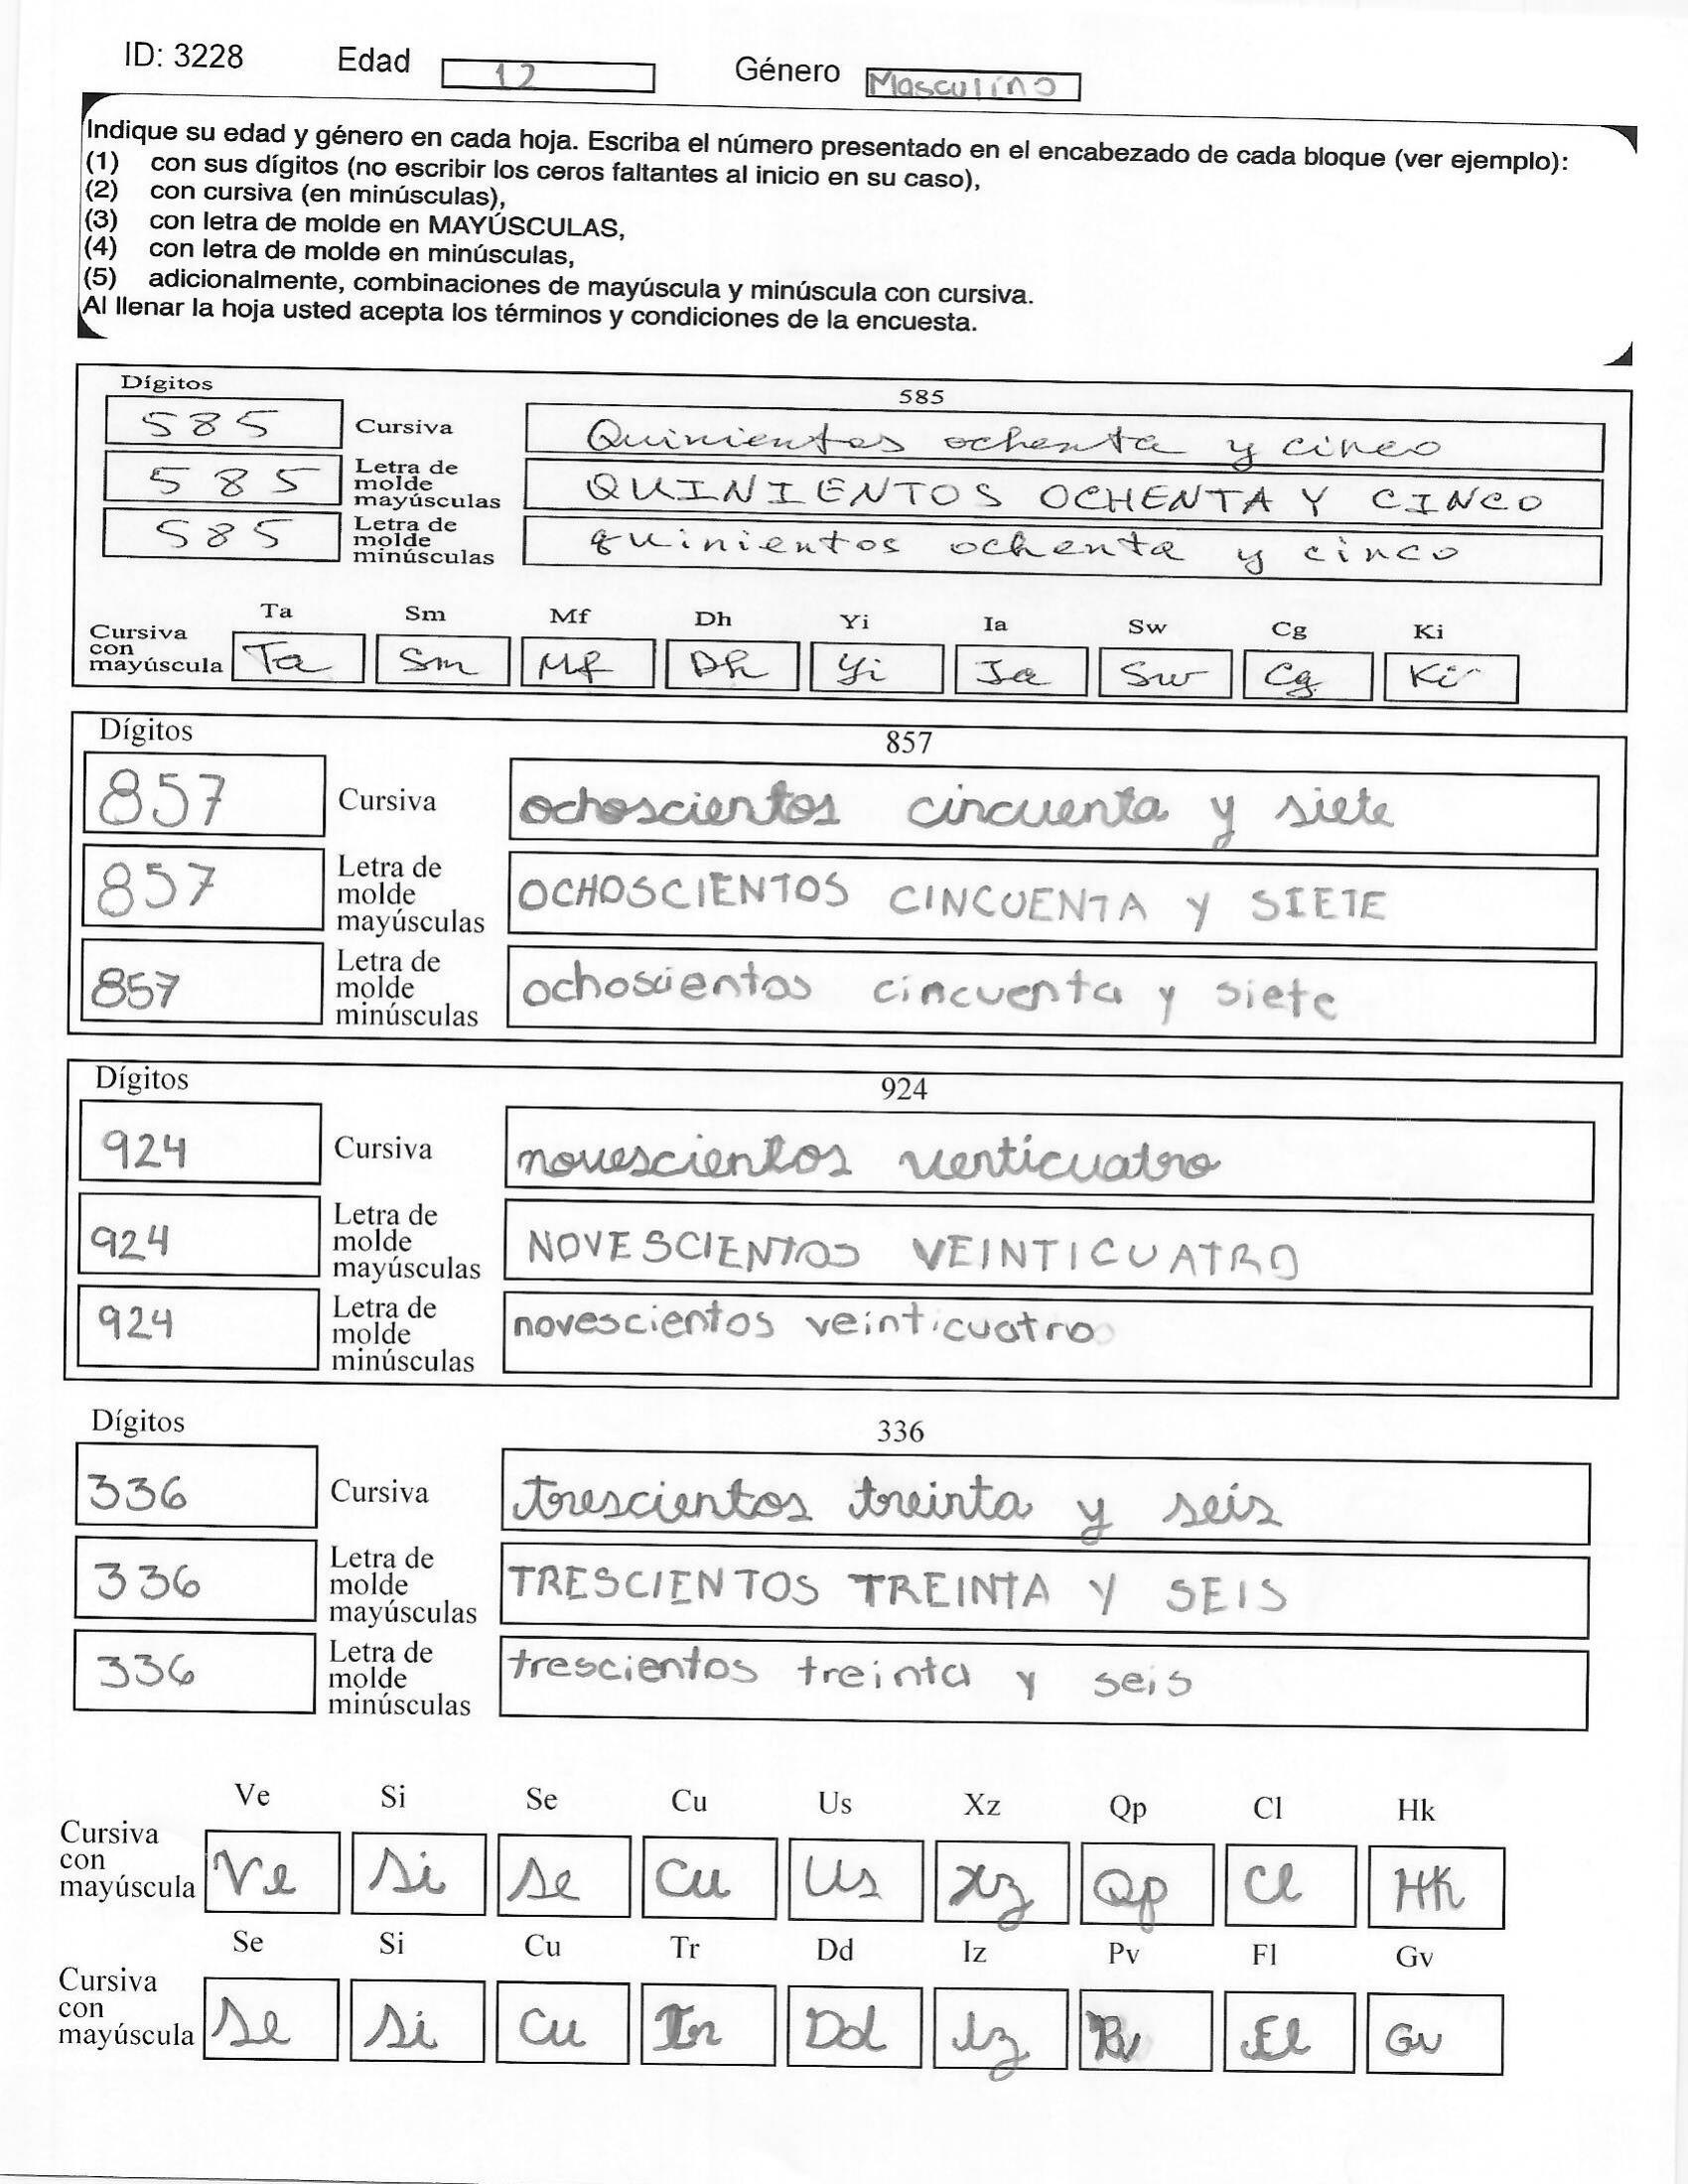 ID: 3228 Edad 12 Género Masculino
Indique su edad y género en cada hoja. Escriba el número presentado en el encabezado de cada bloque (ver ejemplo):
(1) con sus dígitos (no escribir los ceros faltantes al inicio en su caso),
(2) con cursiva (en minúsculas),
(3) con letra de molde en MAYÚSCULAS,
(4) con letra de molde en minúsculas,
(5) adicionalmente, combinaciones de mayúscula y minúscula con cursiva.
Al llenar la hoja usted acepta los términos y condiciones de la encuesta.
Dígitos 585
585 Cursiva Quinientos ochenta y cinco
585 Letra de molde mayúsculas QUINIENTOS OCHENTA Y CINCO
585 Letra de molde minúsculas quinientos ochenta y cinco
Ta Sm Mf Dh Yi Ia Sw Cg Ki
Cursiva con mayúscula Ta Sm Mf Dh Yi Ia Sw Cg Ki
Dígitos 857
857 Cursiva ochoscientos cincuenta y siete
857 Letra de molde mayúsculas OCHOSCIENTOS CINCUENTA Y SIETE
857 Letra de molde minúsculas ochoscientos cincuenta y siete
Dígitos 924
924 Cursiva novescientos venticuatro
924 Letra de molde mayúsculas NOVESCIENTOS VEINTICUATRO
924 Letra de molde minúsculas novescientos veinticuatro
Dígitos 336
336 Cursiva trescientos treinta y seis
336 Letra de molde mayúsculas TRESCIENTOS TREINTA Y SEIS
336 Letra de molde minúsculas trescientos treinta y seis
Ve Si Se Cu Us Xz Qp Cl Hk
Cursiva con mayúscula Ve Si Se Cu Us Xz Qp Cl Hk
Se Si Cu Tr Dd Iz Pv Fl Gv
Cursiva con mayúscula Se Si Cu Tr Dd Iz Pv Fl Gv